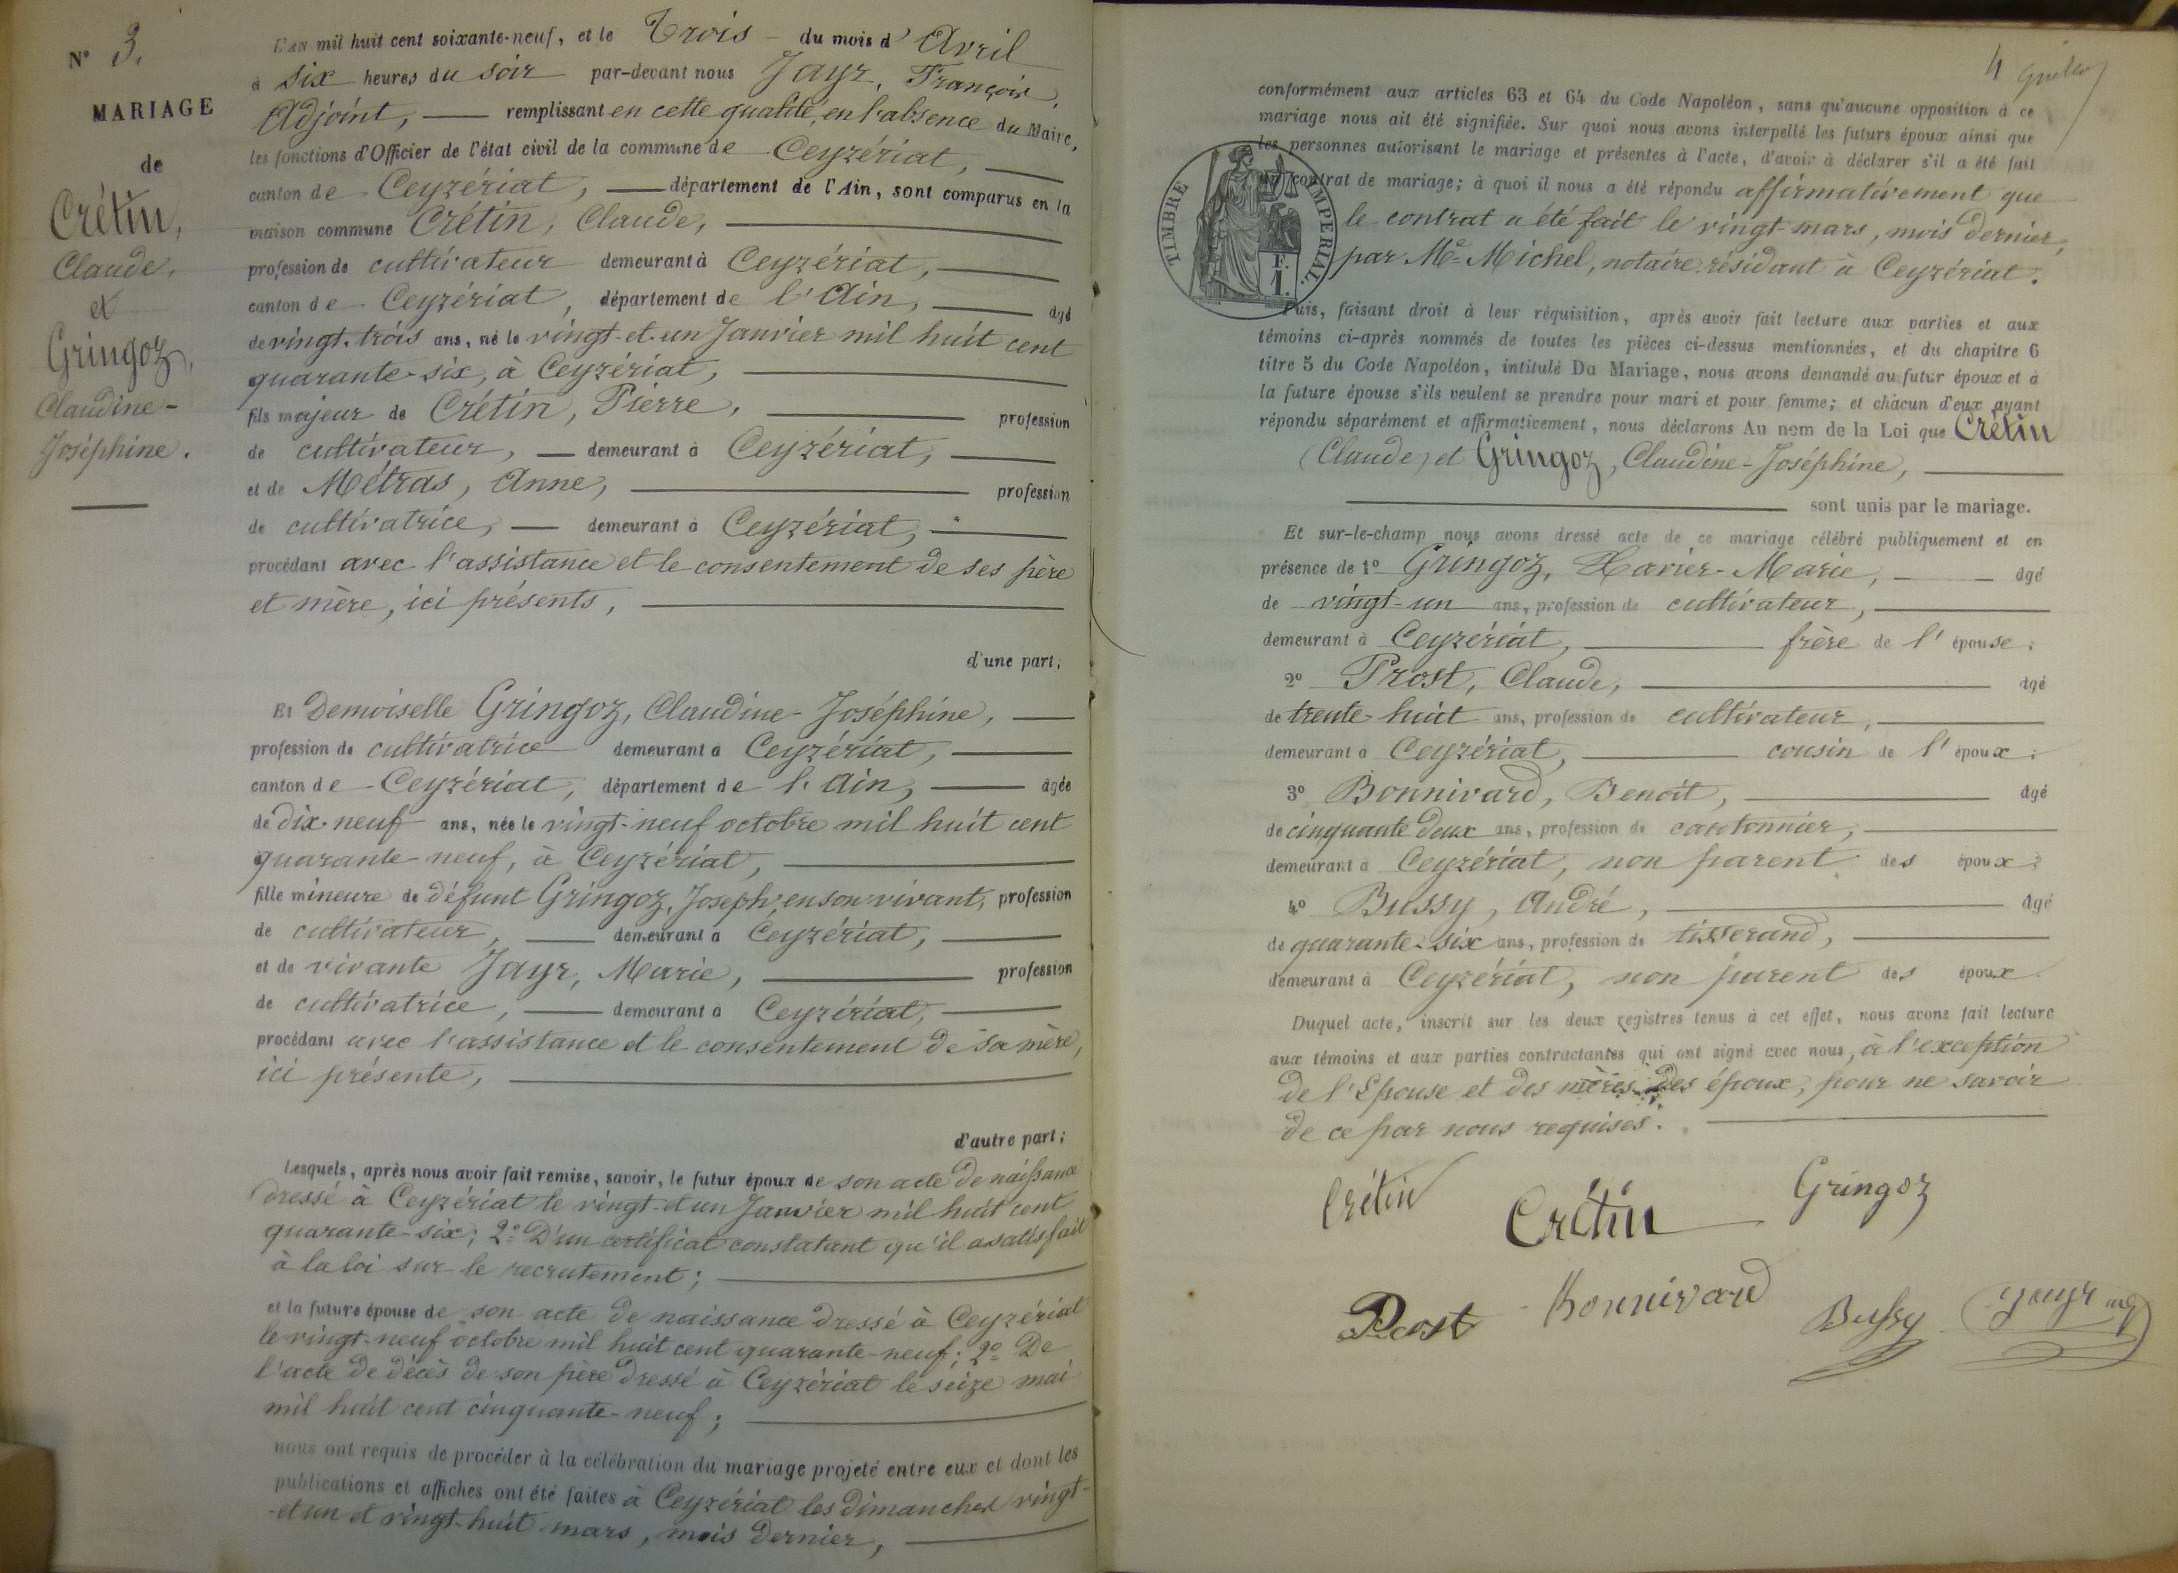 N° 3.
MARIAGE
de
Crétin,
Claude,
et
Gringoz,
Claudine-
Joséphine.
L'an mil huit cent soixante-neuf, et le Trois du mois d'Avril
à six heures du soir par-devant nous Jayr, François,
Adjoint, remplissant en cette qualité, en l'absence du Maire,
les fonctions d'Officier de l'état civil de la commune de Ceyzériat,
canton de Ceyzériat, département de l'Ain, sont comparus en la
maison commune Crétin, Claude,
profession de cultivateur demeurant à Ceyzériat,
canton de Ceyzériat, département de l'Ain, âgé
de vingt-trois ans, né le vingt-et-un Janvier mil huit cent
quarante-six, à Ceyzériat,
fils majeur de Crétin, Pierre, profession
de cultivateur, demeurant à Ceyzériat,
et de Métras, Anne, profession
de cultivatrice, demeurant à Ceyzériat,
procédant avec l'assistance et le consentement de ses père
et mère, ici présents,
d'une part;
Et Demoiselle Gringoz, Claudine-Joséphine,
profession de cultivatrice demeurant à Ceyzériat,
canton de Ceyzériat, département de l'Ain, âgée
de dix-neuf ans, née le vingt-neuf octobre mil huit cent
quarante-neuf, à Ceyzériat,
fille mineure de défunt Gringoz, Joseph, en son vivant, profession
de cultivateur, demeurant à Ceyzériat,
et de vivante Jayr, Marie, profession
de cultivatrice, demeurant à Ceyzériat,
procédant avec l'assistance et le consentement de sa mère,
ici présente,
d'autre part;
Lesquels, après nous avoir fait remise, savoir, le futur époux de son acte de naissance
dressé à Ceyzériat le vingt-et un Janvier mil huit cent
quarante-six; 2° D'un certificat constatant qu'il a satisfait
à la loi sur le recrutement;
et la future épouse de son acte de naissance dressé à Ceyzériat
le vingt-neuf octobre mil huit cent quarante-neuf; 2° De
l'acte de décès de son père dressé à Ceyzériat le seize mai
mil huit cent cinquante-neuf;
nous ont requis de procéder à la célébration du mariage projeté entre eux et dont les
publications et affiches ont été faites à Ceyzériat les dimanches vingt-
-et un et vingt-huit mars, mois dernier,
4
conformément aux articles 63 et 64 du Code Napoléon, sans qu'aucune opposition à ce
mariage nous ait été signifiée. Sur quoi nous avons interpellé les futurs époux ainsi que
les personnes autorisant le mariage et présentes à l'acte, d'avoir à déclarer s'il a été fait
un contrat de mariage; à quoi il nous a été répondu affirmativement que
le contrat a été fait le vingt mars, mois dernier,
par Me Michel, notaire résidant à Ceyzériat.
TIMBRE IMPERIAL
F.
1.
Puis, faisant droit à leur réquisition, après avoir fait lecture aux parties et aux
témoins ci-après nommés de toutes les pièces ci-dessus mentionnées, et du chapitre 6
titre 5 du Code Napoléon, intitulé Du Mariage, nous avons demandé au futur époux et à
la future épouse s'ils veulent se prendre pour mari et pour femme; et chacun d'eux ayant
répondu séparément et affirmativement, nous déclarons Au nom de la Loi que Crétin
(Claude) et Gringoz, Claudine-Joséphine,
sont unis par le mariage.
Et sur-le-champ nous avons dressé acte de ce mariage célébré publiquement et en
présence de 1° Gringoz, Xavier-Marie, âgé
de vingt-un ans, profession de cultivateur,
demeurant à Ceyzériat, frère de l'épouse;
2° Prost, Claude, âgé
de trente-huit ans, profession de cultivateur,
demeurant à Ceyzériat, cousin de l'époux;
3° Bonnivard, Benoit, âgé
de cinquante deux ans, profession de cantonnier,
demeurant à Ceyzériat, non parent des époux;
4° Bussy, André, âgé
de quarante-six ans, profession de tisserand,
demeurant à Ceyzériat, non parent des époux.
Duquel acte, inscrit sur les deux registres tenus à cet effet, nous avons fait lecture
aux témoins et aux parties contractantes qui ont signé avec nous, à l'exception
de l'Epouse et des mères des époux, pour ne savoir
de ce par nous requises.
Crétin Crétin Gringoz
Prost Bonnivard Bussy Jayr adj